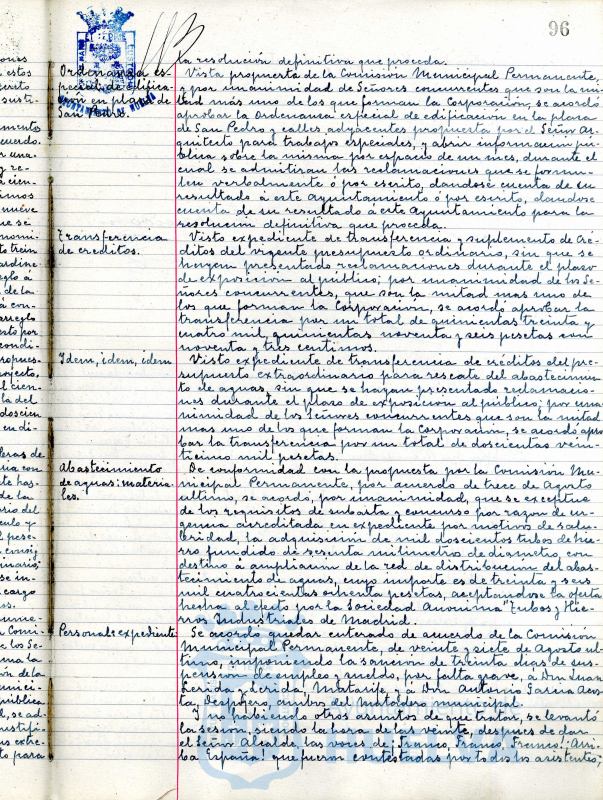 96
la resolución definitiva que proceda.
Ordenanza es-
pecial de edifica-
ción en plaza de
San Pedro.
Vista propuesta de la Comisión Municipal Permanente,
y por unanimidad de Señores concurrentes que son la mi-
tad más uno de los que forman la Corporación, se acordó
aprobar la Ordenanza especial de edificación en la plaza
de San Pedro y calles adyacentes propuesta por el Señor Ar-
quitecto para trabajos especiales, y abrir información pú-
blica sobre la misma por espacio de un mes, durante el
cual se admitirán las reclamaciones que se formu-
len verbalmente ó por escrito, dandose cuenta de su
resultado á este Ayuntamiento ó por escrito, dandose
cuenta de su resultado á este Ayuntamiento para la
resolución definitiva que proceda.
Transferencia
de creditos.
Visto expediente de transferencia y suplemento de cré-
ditos del vigente presupuesto ordinario, sin que se
hayan presentado reclamaciones durante el plazo
de exposición al público; por unanimidad de los Se-
ñores concurrentes, que son la mitad mas uno de
los que forman la Corporación, se acordó aprobar la
transferencia por un total de quinientas treinta y
cuatro mil quinientas noventa y seis pesetas con
noventa y tres centimos.
Idem, idem, idem
Visto expediente de transferencia de créditos del pre-
supuesto extraordinario para rescate del abastecimien-
to de aguas, sin que se hayan presentado reclamacio-
nes durante el plazo de exposición al público; por una-
nimidad de los Señores concurrentes que son la mitad
mas uno de los que forman la Corporación, se acordó apro-
bar la transferencia por un total de doscientas vein-
ticinco mil pesetas.
Abastecimiento
de aguas: materia-
les.
De conformidad con la propuesta por la Comisión Mu-
nicipal Permanente, por acuerdo de trece de Agosto
ultimo, se acordó, por unanimidad, que se exceptua
de los requisitos de subasta y concurso por razon de ur-
gencia acreditada en expediente por motivos de salu-
bridad, la adquisición de mil doscientos tubos de hie-
rro fundido de sesenta milimetros de diametro, con
destino á ampliación de la red de distribución del abas-
tecimiento de aguas, cuyo importe es de treinta y seis
mil cuatrocientas ochenta pesetas, aceptandose la oferta
hecha al efecto por la Sociedad Anonima "Tubos y Hie-
rros Industriales de Madrid.
Personal: expediente
Se acordó quedar enterado de acuerdo de la Comisión
Municipal Permanente, de veinte y siete de Agosto ul-
timo, imponiendo la sanción de treinta dias de sus-
pensión de empleo y sueldo, por falta grave, á Don Juan
Lerida y Lerida, Matarife, y á Don Antonio Garcia
Despojero, ambos del Matadero municipal.
Y no habiendo otros asuntos de que tratar, se levantó
la sesión, siendo la hora de las veinte, despues de dar
el Señor Alcalde, las voces de: ¡Franco, Franco, Franco! ¡Arri-
ba España! que fueron contestadas por todos los asistentes;